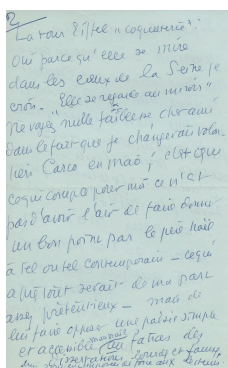 2
La tour Eiffel "coquetterie" :
Oui parce qu'elle se mire
dans les eaux de la Seine je
crois - "Elle se regarde au miroir"
Ne voyez nulle faiblesse cher ami
dans le fait que je changerais volon
tiers Carco en Mac ; c'est que
ce qui compte pour moi ce n'est
pas d'avoir l'air de faire donner
un bon point par le père
à tel ou tel contemporain - ce qui
après tout serait de ma part
assez prétentieux - mais de
lui faire opposer une poésie simple
et accessible au fatras des